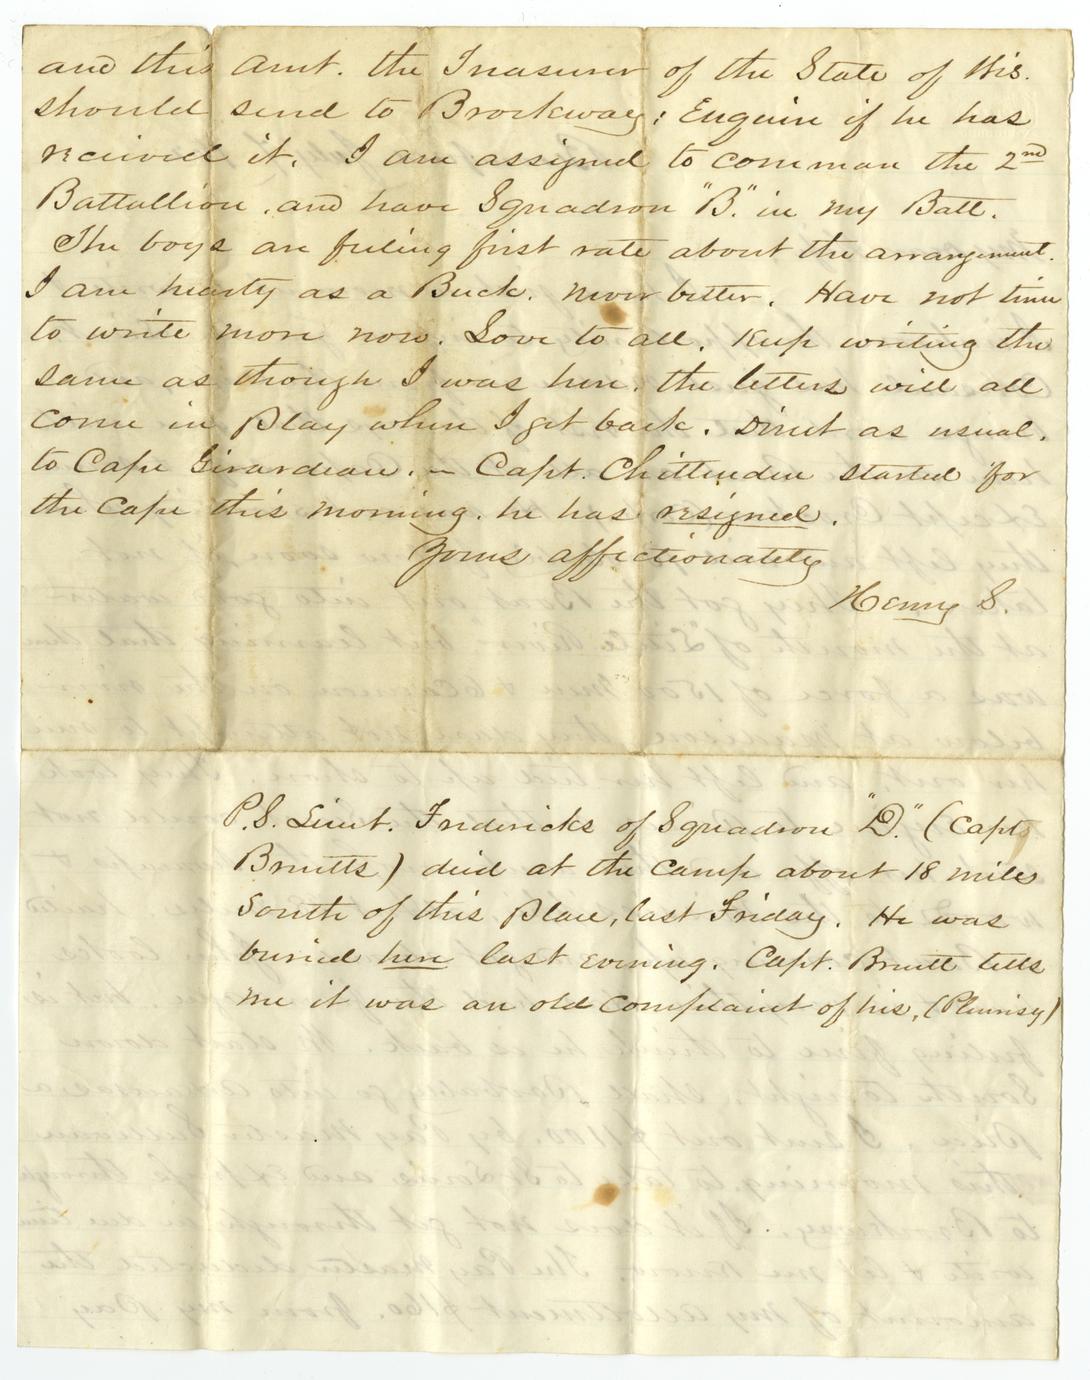 and this Amt. the Treasurer of the State of Wis.
should send to Brockway; Enquire if he has
received it. I am assigned to comman the 2nd
Battallion, and have Squadron "B." in my Batt.
The boys are feeling first rate about the arrangement.
I am hearty as a Buck. never better. Have not time
to write more now. Love to all. Keep writing the
same as though I was here. the letters will all
come in Play when I get back. Direct as usual.
to Cape Girardeau. – Capt. Chittenden started for
the Cape this morning. he has resigned.
Yours affectionately
Henry S.
P.S. Lieut. Fredericks of Squadron "D." (Capt
Bruetts) died at the Camp about 18 miles
South of this Place, last Friday. He was
buried here last evening. Capt. Bruett tells
me it was an old complaint of his, (Pleurisy)